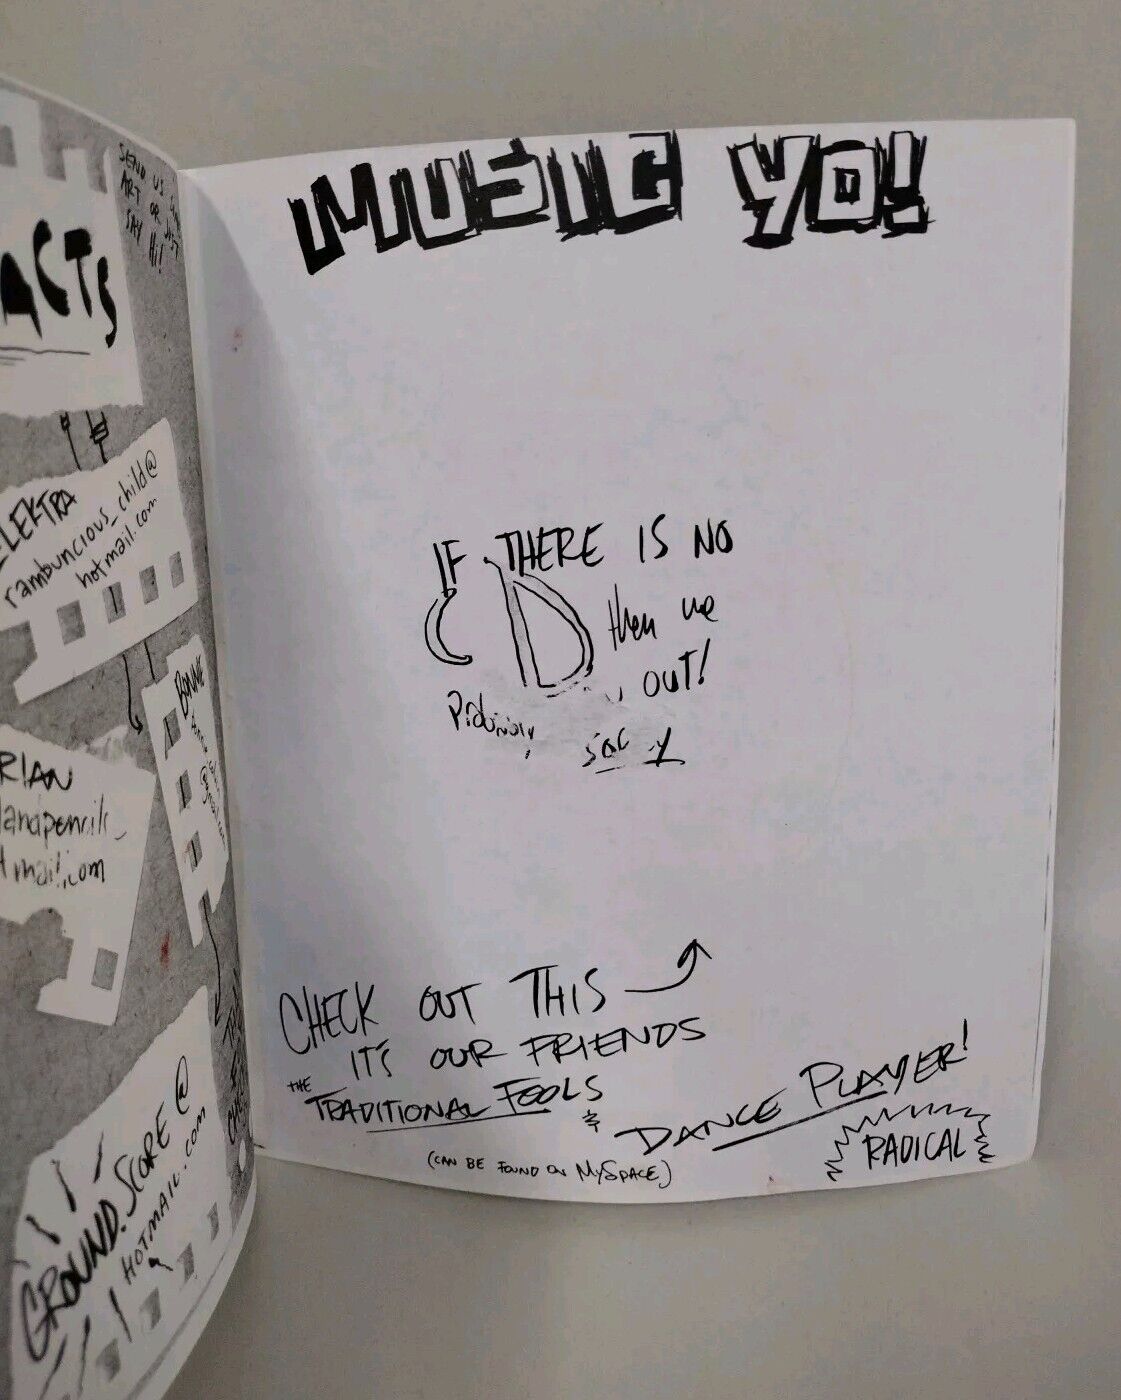 SEND US
ART OR
SAY Hi!
ACTS
ELEKTRA
rambuncious_child@
hotmail.com
RIAN
landpencils_
tmail.com
GROUND.SCORE@
HOTMAIL.com
MUSIC YO!
IF THERE IS NO
CD then we
OUT!
CHECK OUT THIS
IT'S OUR FRIENDS
THE TRADITIONAL FOOLS
& DANCE PLAYER!
(CAN BE FOUND ON MYSPACE)
RADICAL